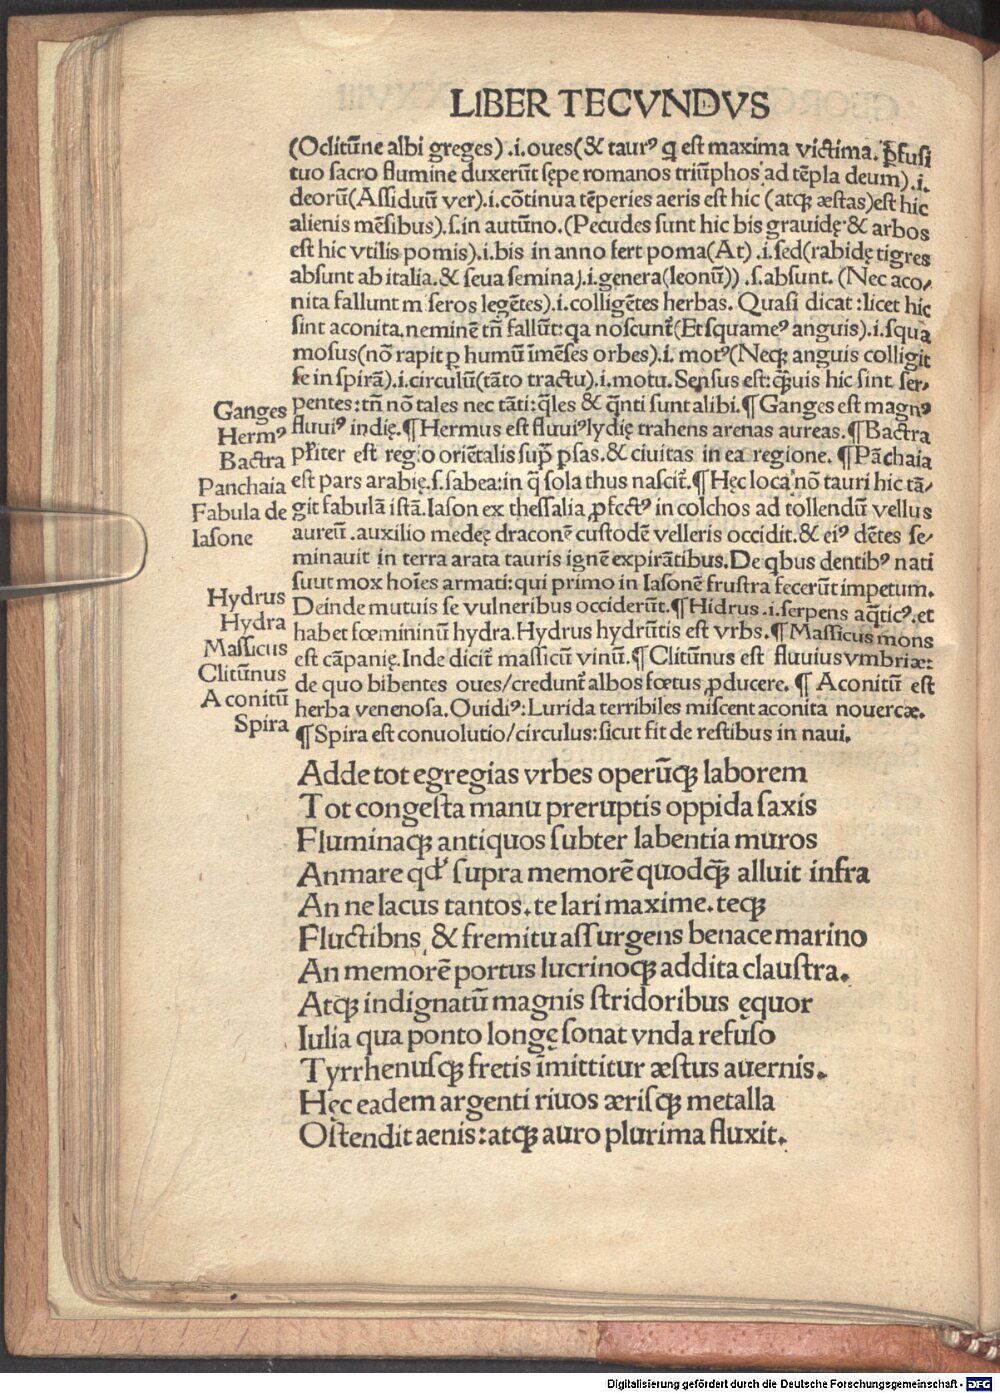 LIBER TECVNDVS
(O clitūne albi greges) .i.oues(& taurꝰ q est maxima victima. ꝑfusi
tuo sacro flumine duxerūt sępe romanos triūphos ad tēpla deum).i.
deorū(Assiduū ver).i.cōtinua tēperies aeris est hic (atqꝫ æstas)est hic
alienis mēsibus).s.in autūno.(Pecudes sunt hic bis grauidę & arbos
est hic vtilis pomis).i.bis in anno fert poma(At) .i.sed(rabidę tigres
absunt ab italia.& seua semina).i.genera(leonū)) .s.absunt. (Nec aco/
nita fallunt m seros legētes).i.colligētes herbas. Quasi dicat :licet hic
sint aconita.neminē tn̄ fallūt:qa noscunt̄(Et squameꝰ anguis).i.squa
mosus(nō rapit ꝑ humū īmēses orbes).i. motꝰ(Neqꝫ anguis colligit
se in spirā).i.circulū(tāto tractu).i.motu. Sensus est:q̄uis hic sint ser/
pentes:tn̄ nō tales nec tāti:q̄les & q̄nti sunt alibi.¶ Ganges est magnꝰ
Ganges
fluuiꝰ indię.¶ Hermus est fluuiꝰ lydię trahens arenas aureas.¶ Bactra
Hermꝰ
pr̄iter est regio oriētalis sup̄ psas.& ciuitas in ea regione. ¶ Pāchaia
Bactra
est pars arabię.s.sabea:in q̄ sola thus nascit̄.¶ Hęc loca nō tauri hic tā/
Panchaia
git fabulā istā. Iason ex thessalia ꝓfectꝰ in colchos ad tollendū vellus
Fabula de
aureū .auxilio medeę draconē custodē velleris occidit.& eiꝰ dētes se/
Iasone
minauit in terra arata tauris ignē expirātibus. De qbus dentibꝰ nati
suut mox hoīes armati: qui primo in Iasonē frustra fecerūt impetum.
Deinde mutuis se vulneribus occiderūt.¶ Hidrus .i.serpens aq̄ticꝰ.et
Hydrus
habet fœmininū hydra. Hydrus hydrūtis est vrbs.¶ Massicus mons
Hydra
est cāpanię. Inde dicit̄ massicū vinū.¶ Clitūnus est fluuius vmbriæ:
Massicus
de quo bibentes oues/credunt̄ albos fœtus ꝓducere. ¶ Aconitū est
Clitūnus
herba venenosa. Ouidiꝰ: Lurida terribiles miscent aconita nouercæ.
Aconitū
¶ Spira est conuolutio/circulus:sicut fit de restibus in naui.
Spira
Adde tot egregias vrbes operūqꝫ laborem
Tot congesta manu preruptis oppida saxis
Fluminaqꝫ antiquos subter labentia muros
An mare qd' supra memorē quodqꝫ̄ alluit infra
An ne lacus tantos.te lari maxime.teqꝫ
Fluctibns, & fremitu assurgens benace marino
An memorē portus lucrinoqꝫ addita claustra.
Atqꝫ indignatū magnis stridoribus ęquor
Iulia qua ponto longę sonat vnda refuso
Tyrrhenusqꝫ fretis īmittitur æstus auernis.
Hęc eadem argenti riuos ærisqꝫ metalla
Ostendit aenis:atqꝫ auro plurima fluxit.
Digitalisierung gefördert durch die Deutsche Forschungsgemeinschaft - DFG